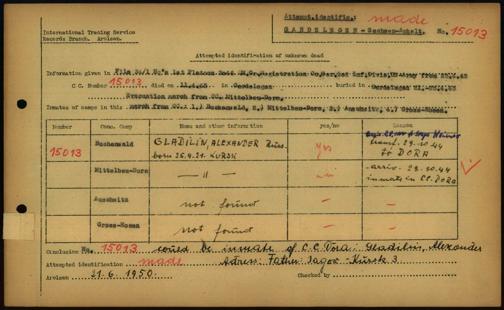 International Tracing Service
Records Branch. Arolsen.
Attempt.identific.: made
GARDELEGEN - Sachsen-Anhalt. No. 15013
Attempted identification of unknown dead
Information given in File
C.C. Number 15013 died on 11.4.45 in Gardelegen buried in Gardelegen
Evacuation march from CC. Mittelbau-Dora,
Inmates of camps in this march from CC. 1.) Buchenwald, 2.) Mittelbau-Dora, 3.) Auschwitz, 4.) Gross-Rosen
Number Conc. Camp Name and other information yes/no Reason
15013 Buchenwald GLADILIN, ALEXANDER Russ. born 26.4.21. KURSK yes transf. 29.10.44 to DORA
Mittelbau-Dora — " — arriv. 29.10.44 inmate in CC. DORA
Auschwitz not found
Gross-Rosen not found
Conclusion: No. 15013 could be inmate of C.C. Dora: Gladilin, Alexander
Attempted identification made Adress: Father: Kursk 3
Arolsen 21.6.1950. Checked by